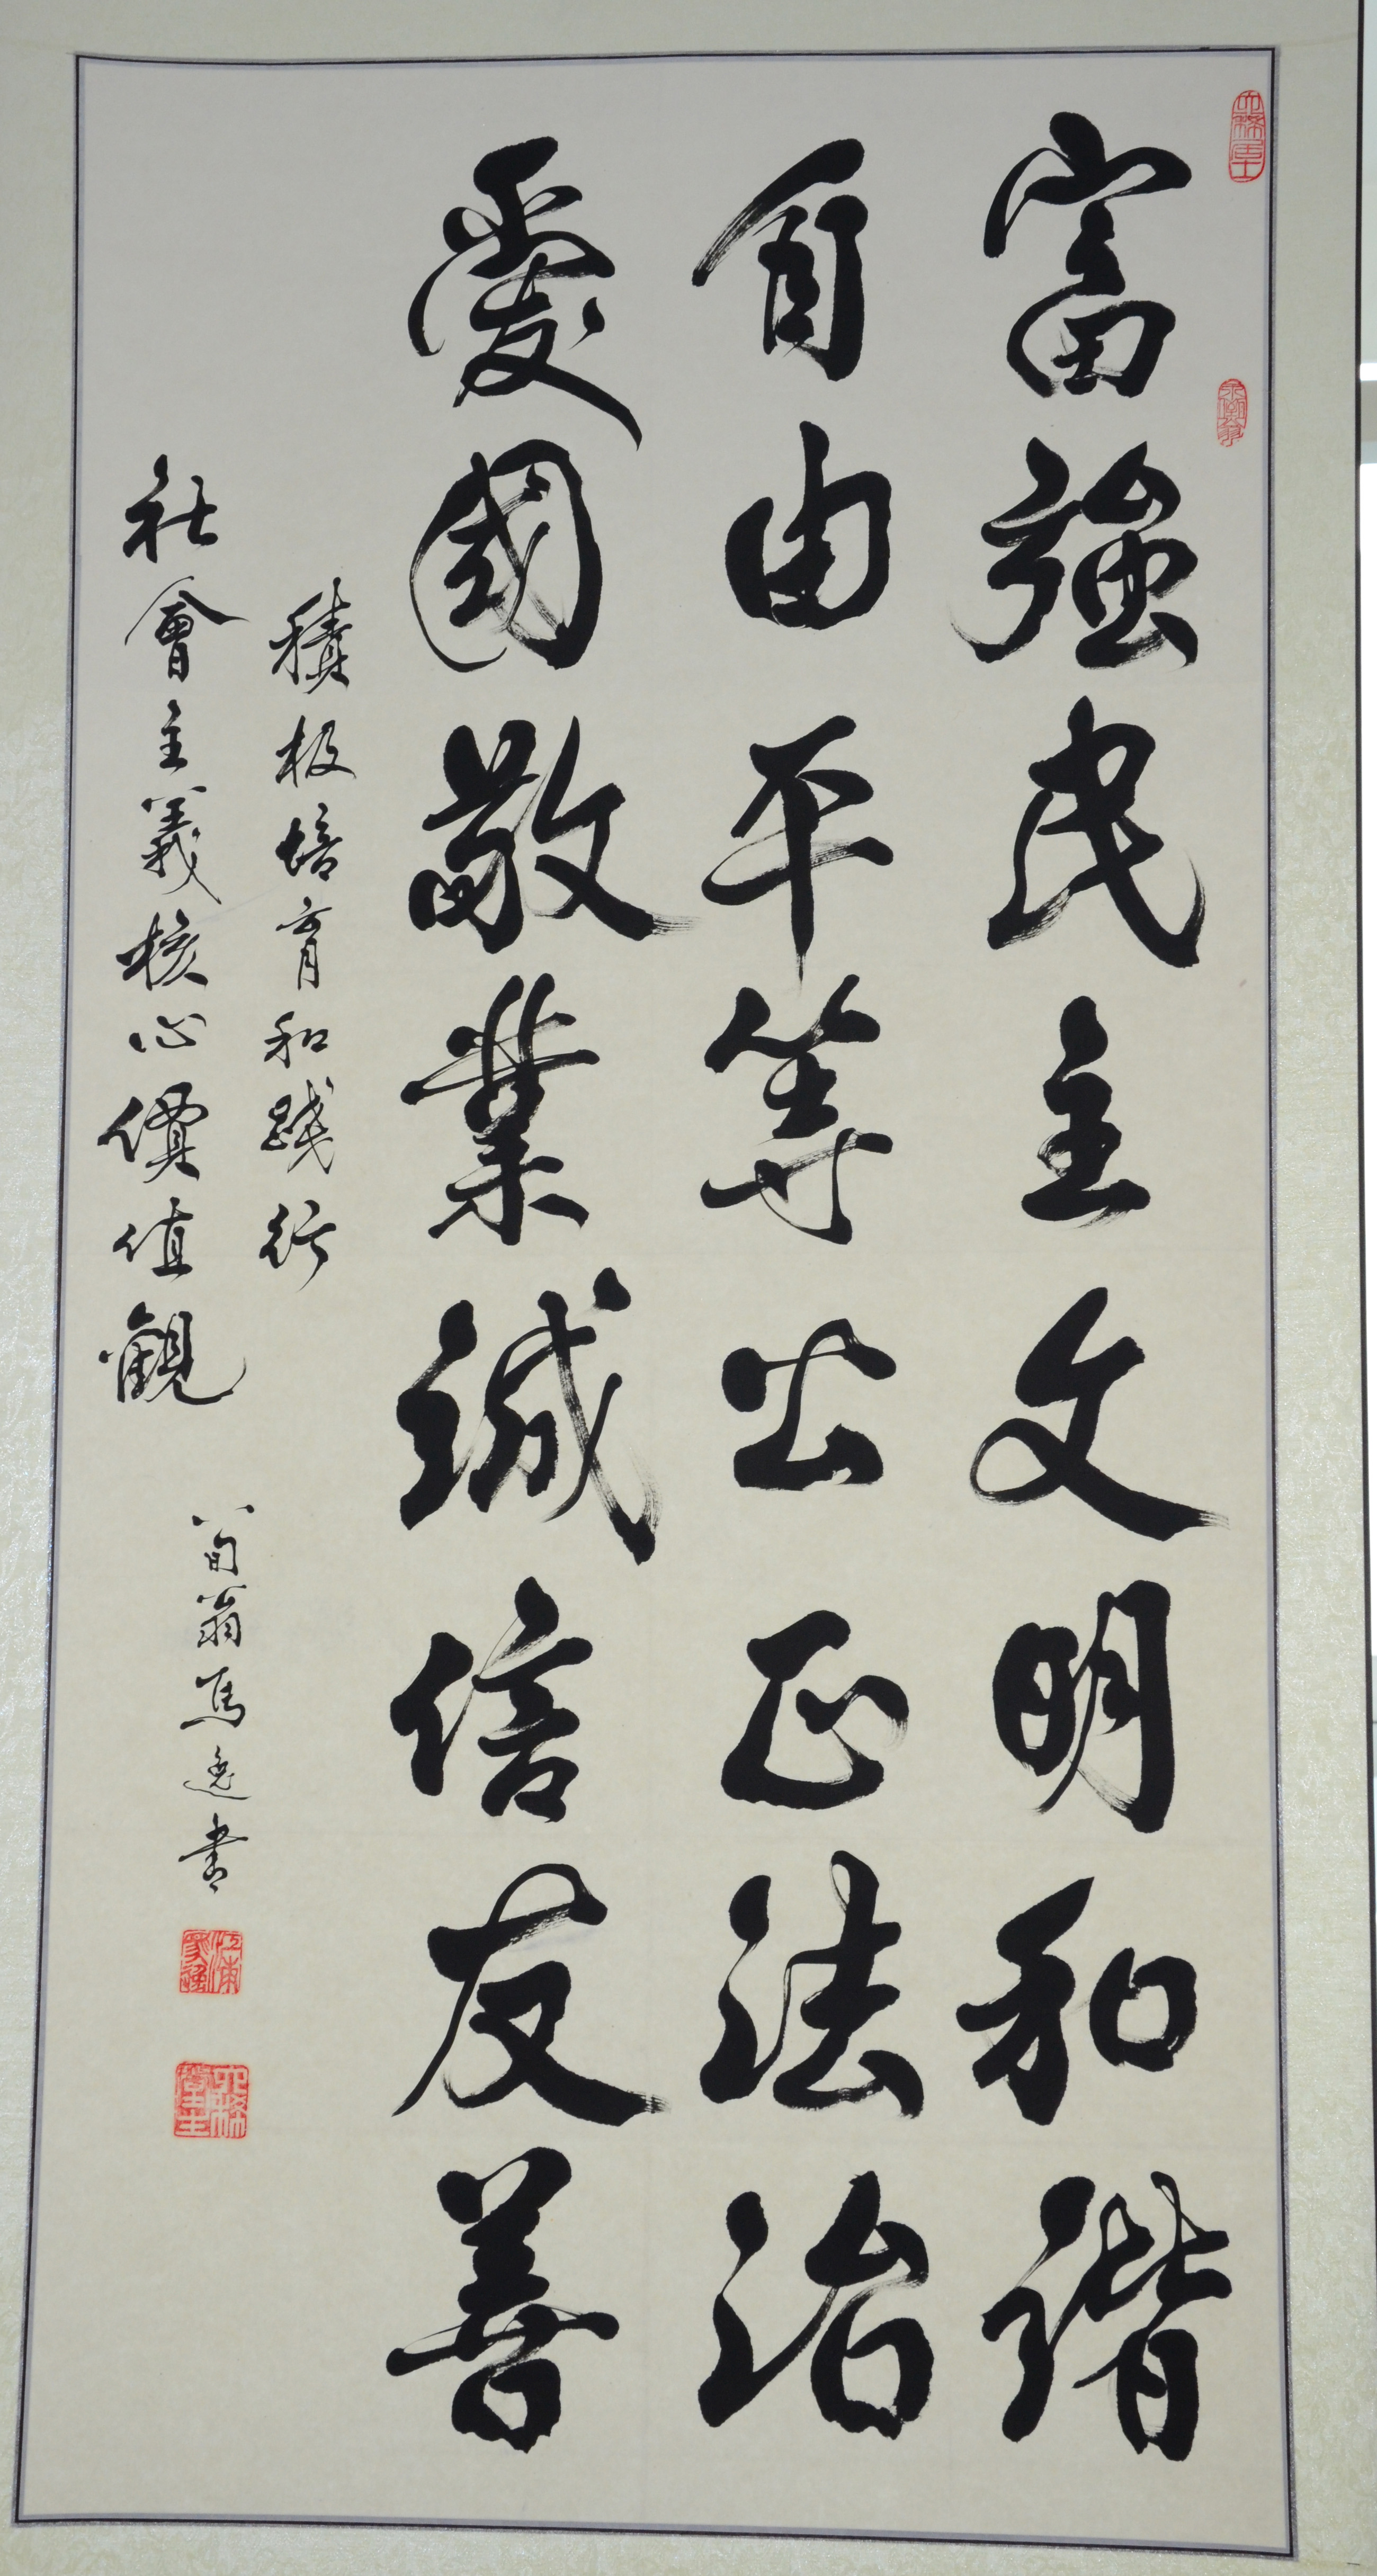 富強民主文明和諧
自由平等公正法治
愛國敬業誠信友善
積極培育和踐行
社會主義核心價值觀
八旬翁馬逸書